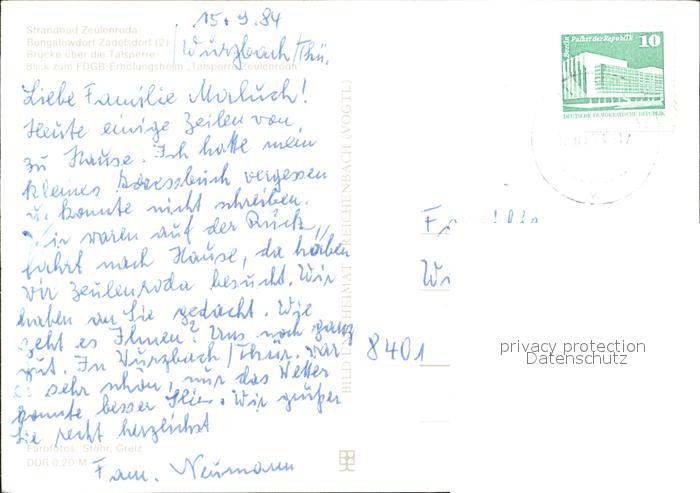 15.9.84
Wurzbach/Thü.
Strandbad Zeulenroda
Bungalowdorf Zadelsdorf (2)
Brücke über die Talsperre
Blick zum FDGB-Erholungsheim „Talsperre Zeulenroda“
Liebe Familie Maluch!
Heute einige Zeilen von
zu Hause. Ich hatte mein
kleines Adressbuch vergessen
u. konnte nicht schreiben.
Wir waren auf der Rück
fahrt nach Hause, da haben
wir Zeulenroda besucht. Wir
haben an Sie gedacht. Wie
geht es Ihnen? Uns noch ganz
gut. In Wurzbach/Thür. war
es sehr schön, nur das Wetter
konnte besser
Wir grüßen
Sie recht herzlichst
Fam. Neumann
Farbfotos: Stöhr, Greiz
DDR 0,20 M
BILD UND HEIMAT REICHENBACH (VOGTL)
Berlin Palast der Republik 10
DEUTSCHE DEMOKRATISCHE REPUBLIK
8401
privacy protection
Datenschutz